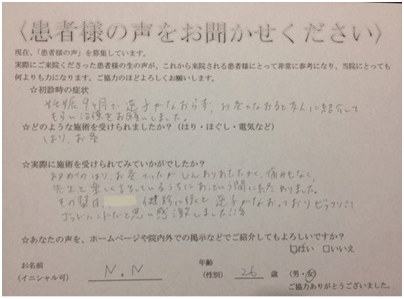 〈患者様の声をお聞かせください〉
現在、「患者様の声」を募集しています。
実際にご来院くださった患者様の生の声が、これから来院される患者様にとって非常に参考になり、当院にとっても
何よりも力になります。ご協力のほどよろしくお願いします。
☆初診時の症状
妊娠9ヶ月で逆子がなおらず、お灸でなおると友人に紹介して
もらい治療をお願いしました。
☆どのような施術を受けられましたか?(はり・ほぐし・電気など)
はり、お灸
☆実際に施術を受けられてみていかがでしたか?
初めてのはり、お灸でしたがじんわりあたたかく、痛みもなく、
先生と楽しく話しているうちにあっという間に終わりました。
その翌日、健診に行くと逆子がなおっておりビックリ!!
感激しました!!
☆あなたの声を、ホームページや院内外での掲示などでご紹介してもよろしいですか?
□はい □いいえ
お名前
(イニシャル可) N.N
年齢
(性別) 26 歳 (男・女)
ご協力ありがとうございました。